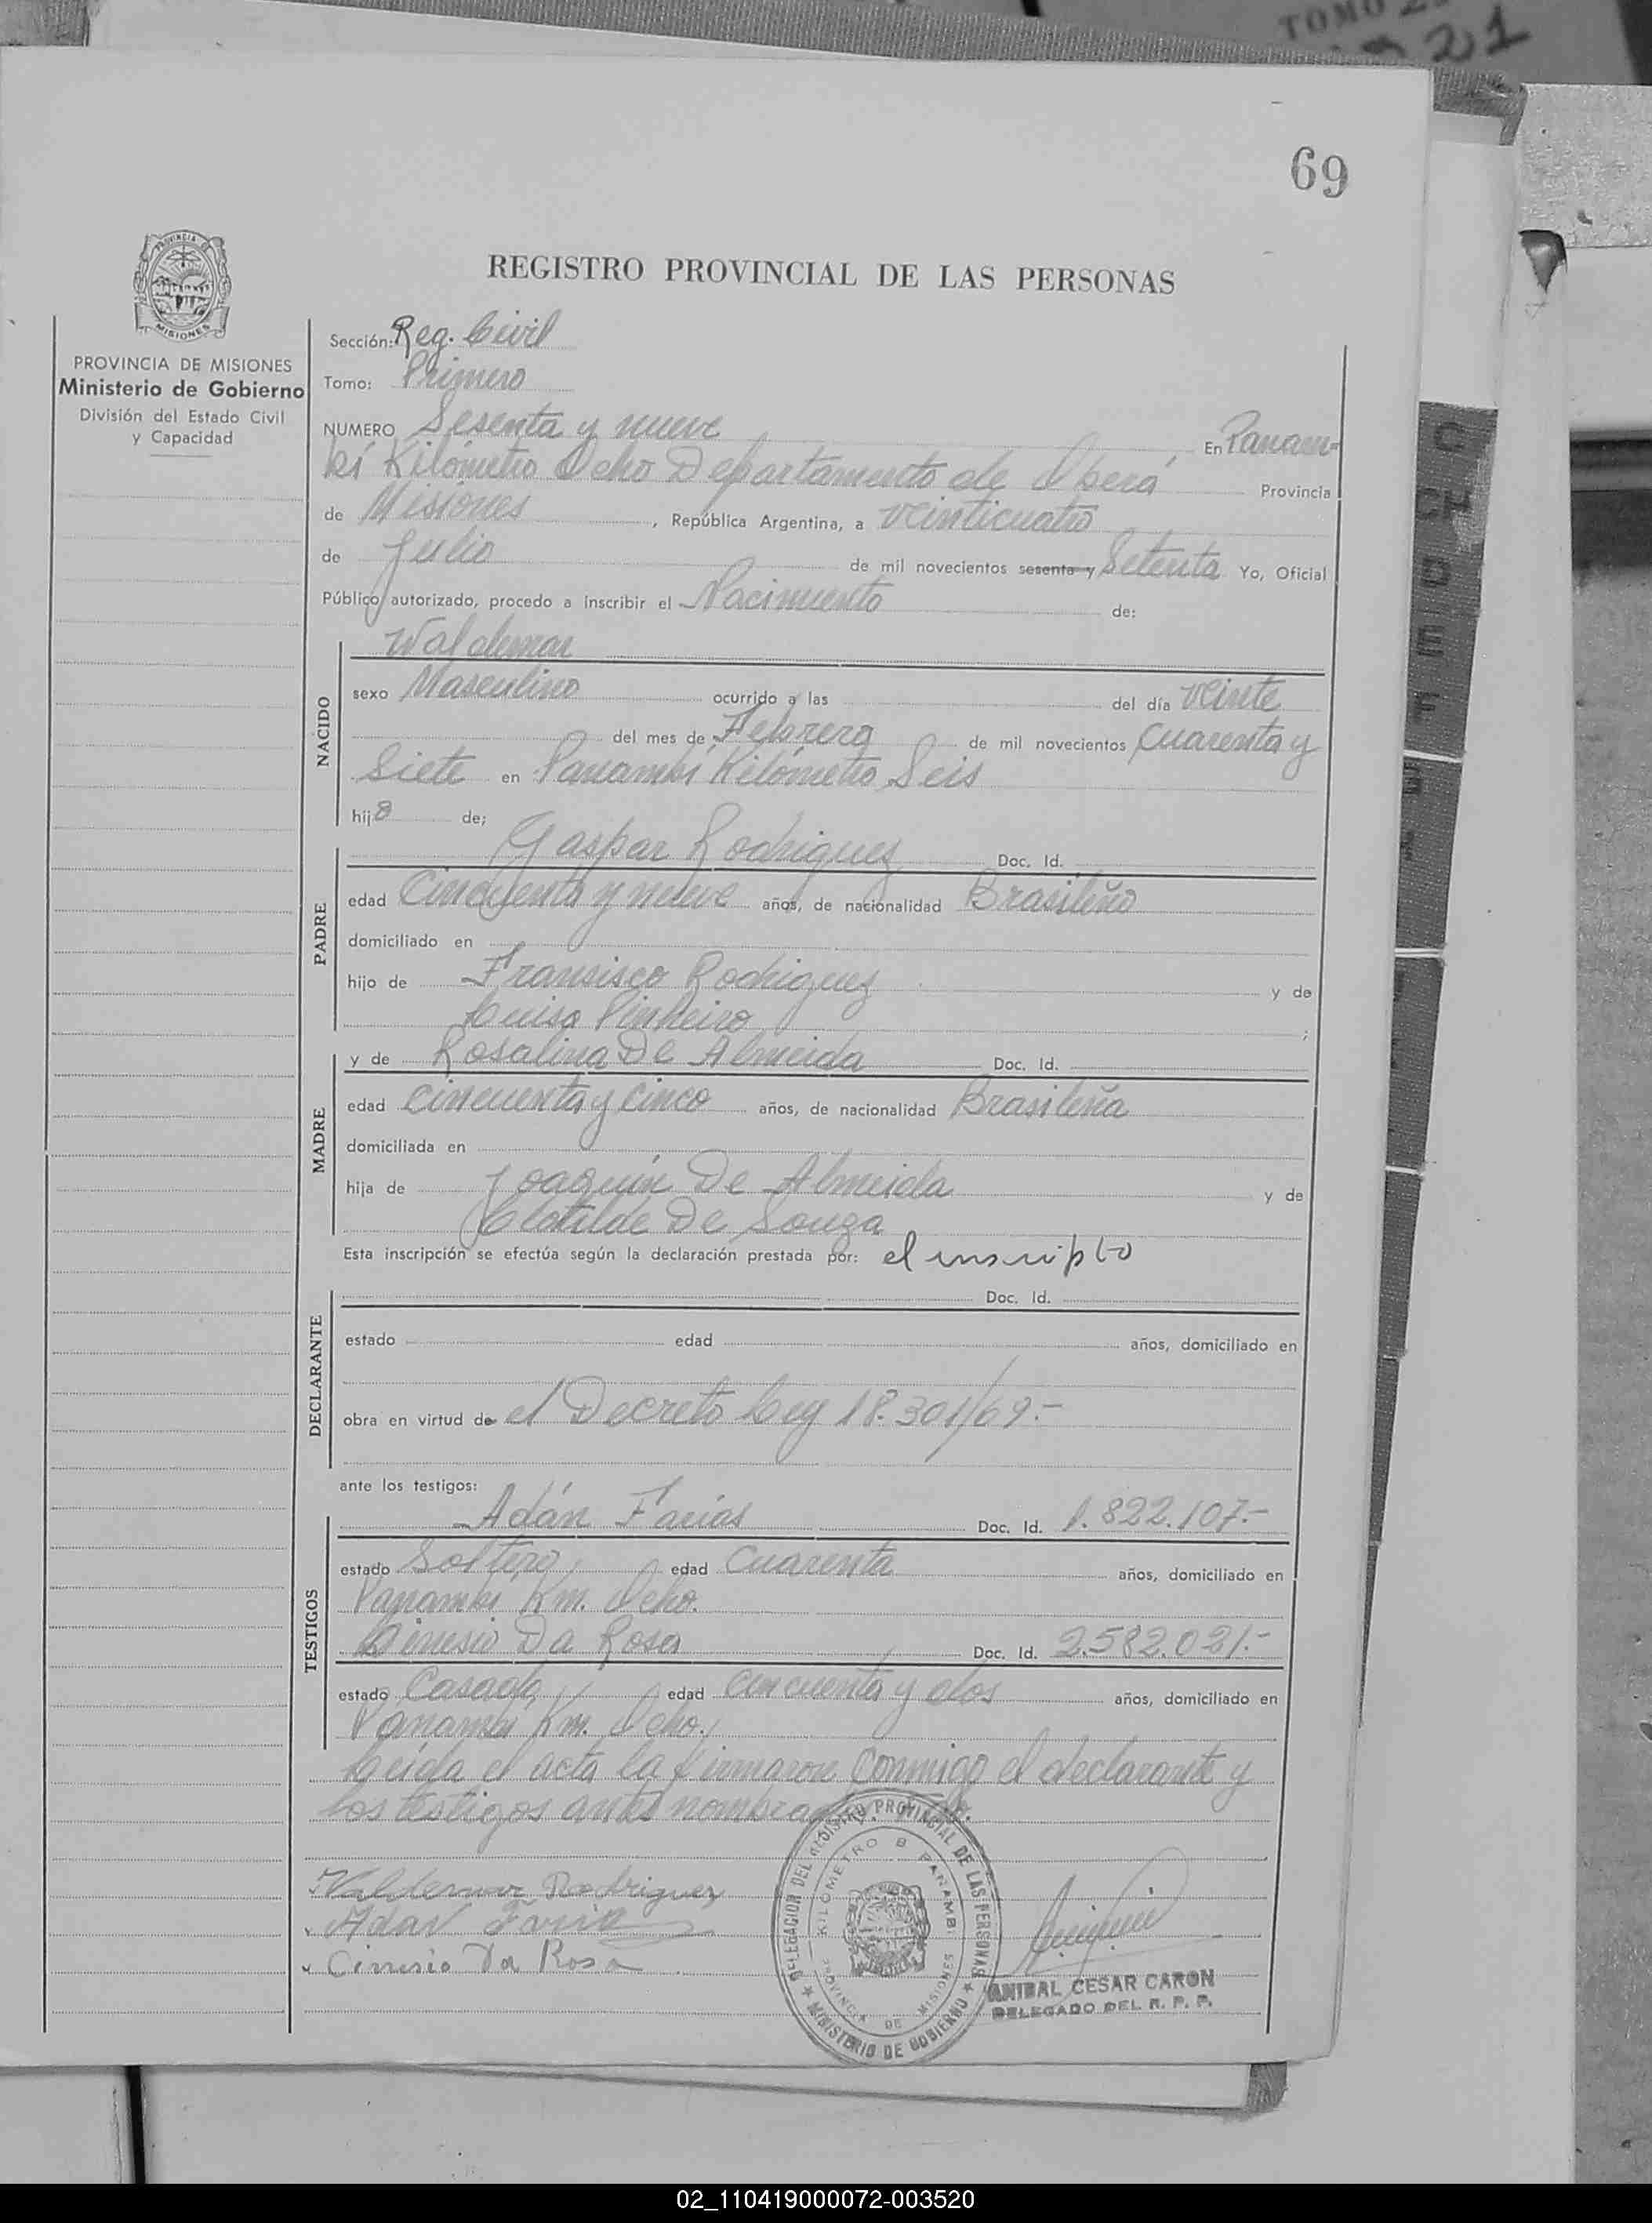 TOMO 2
21
69
PROVINCIA DE
MISIONES
PROVINCIA DE MISIONES
Ministerio de Gobierno
División del Estado Civil
y Capacidad
REGISTRO PROVINCIAL DE LAS PERSONAS
Sección: Reg. Civil
Tomo: Primero
NUMERO Sesenta y nueve En Panam-
bí Kilómetro Ocho Departamento de Oberá Provincia
de Misiones, República Argentina, a veinticuatro
de Julio de mil novecientos sesenta y Setenta Yo, Oficial
Público autorizado, procedo a inscribir el Nacimiento de:
Waldemar
NACIDO
sexo Masculino ocurrido a las del día veinte
del mes de Febrero de mil novecientos Cuarenta y
Siete en Panambí Kilómetro Seis
hijo de;
Gaspar Rodriguez Doc. Id.
PADRE
edad Cincuenta y nueve años, de nacionalidad Brasileño
domiciliado en
hijo de Fransisco Rodriguez y de
Luisa Pinheiro ;
y de Rosalina De Almeida Doc. Id.
MADRE
edad cincuenta y cinco años, de nacionalidad Brasileña
domiciliada en
hija de Joaquín De Almeida y de
Clotilde De Souza
Esta inscripción se efectúa según la declaración prestada por: el inscripto
Doc. Id.
DECLARANTE
estado edad años, domiciliado en
obra en virtud de el Decreto Ley 18.301/69.-
ante los testigos:
Adán Farias Doc. Id. 1.822.107.-
TESTIGOS
estado Soltero edad Cuarenta años, domiciliado en
Panambí Km. Ocho.
Da Rosa Doc. Id. 2.582.021.-
estado Casado edad cincuenta y dos años, domiciliado en
Panambí Km. Ocho.
Leída el acta la firmaron conmigo el declarante y
los testigos antes nombrados
Valdemar Rodriguez
Adan Faria
Cinesio Da Rosa
DELEGACION DEL REGISTRO PROVINCIAL DE LAS PERSONAS
KILOMETRO 8 PANAMBI
PROVINCIA DE MISIONES
MINISTERIO DE GOBIERNO
ANIBAL CESAR CARON
DELEGADO DEL R. P. P.
C
CH
D
E
F
02_110419000072-003520